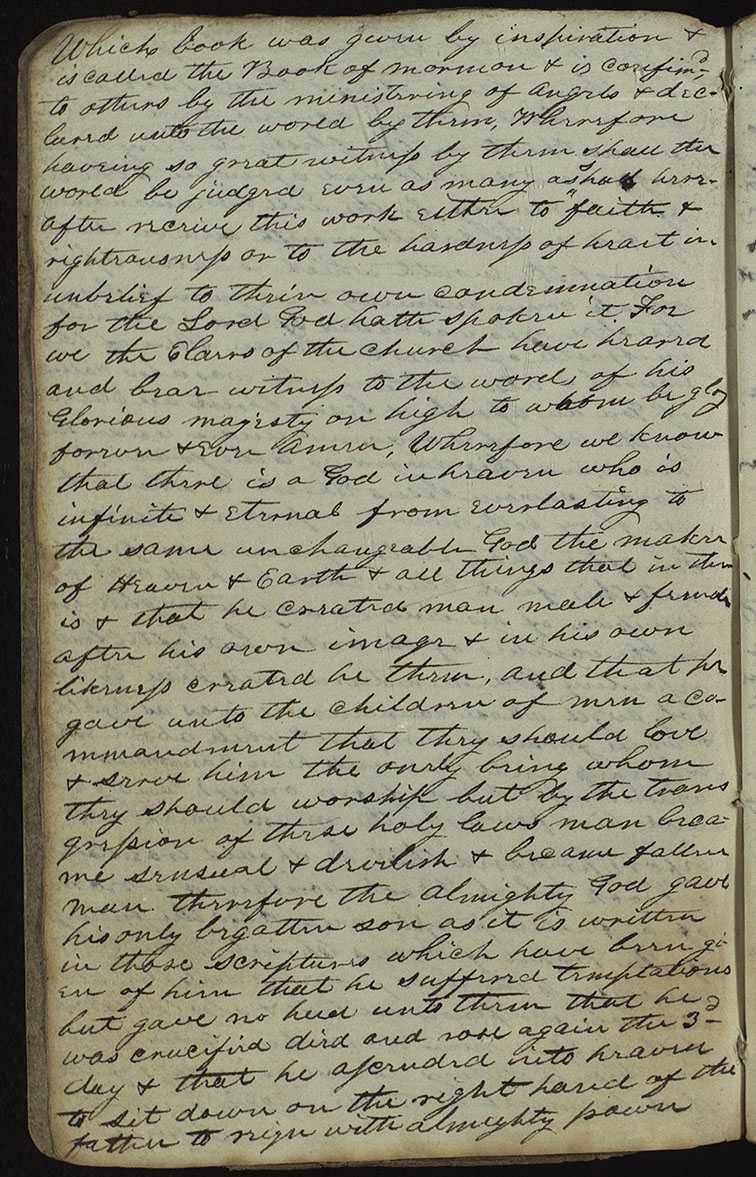 Which book was given by inspiration &
is called the Book of mormon & is confimd-
to others by the ministering of Angels & dec-
lared unto the world by them, Wherefore
haveing so great witness by them shall the
world be judged even as many as shall here-
after receive this work either to faith &
righteousness or to the hardness of heart in
unbelief to their own condemnation
for the Lord God hath spoken it For
we the Elders of the church have heard
and bear witness to the words of his
Glorious majesty on high to whom be glory
forever & Ever Amen, Wherefore we know
that there is a God in heaven who is
infinite & Eternal from Everlasting to
the same unchangeable God the maker
of Heaven & Earth & all things that in them
is & that he created man male & female
after his own image & in his own
likeness created he them, and that he
gave unto the children of men a co-
mmandment that they should love
& serve him the only being whom
they should worship but by the trans
gression of these holy laws man beca-
me sensual & devilish & became fallen
man therefore the almighty God gave
his only begatten son as it is written
in those scriptures which have been gi-
en of him that he suffered temptations
but gave no heed unto them that he
was crucified died and rose again the 3d-
day & that he ascended into heaven
to sit down on the right hand of the
father to reign with almighty power